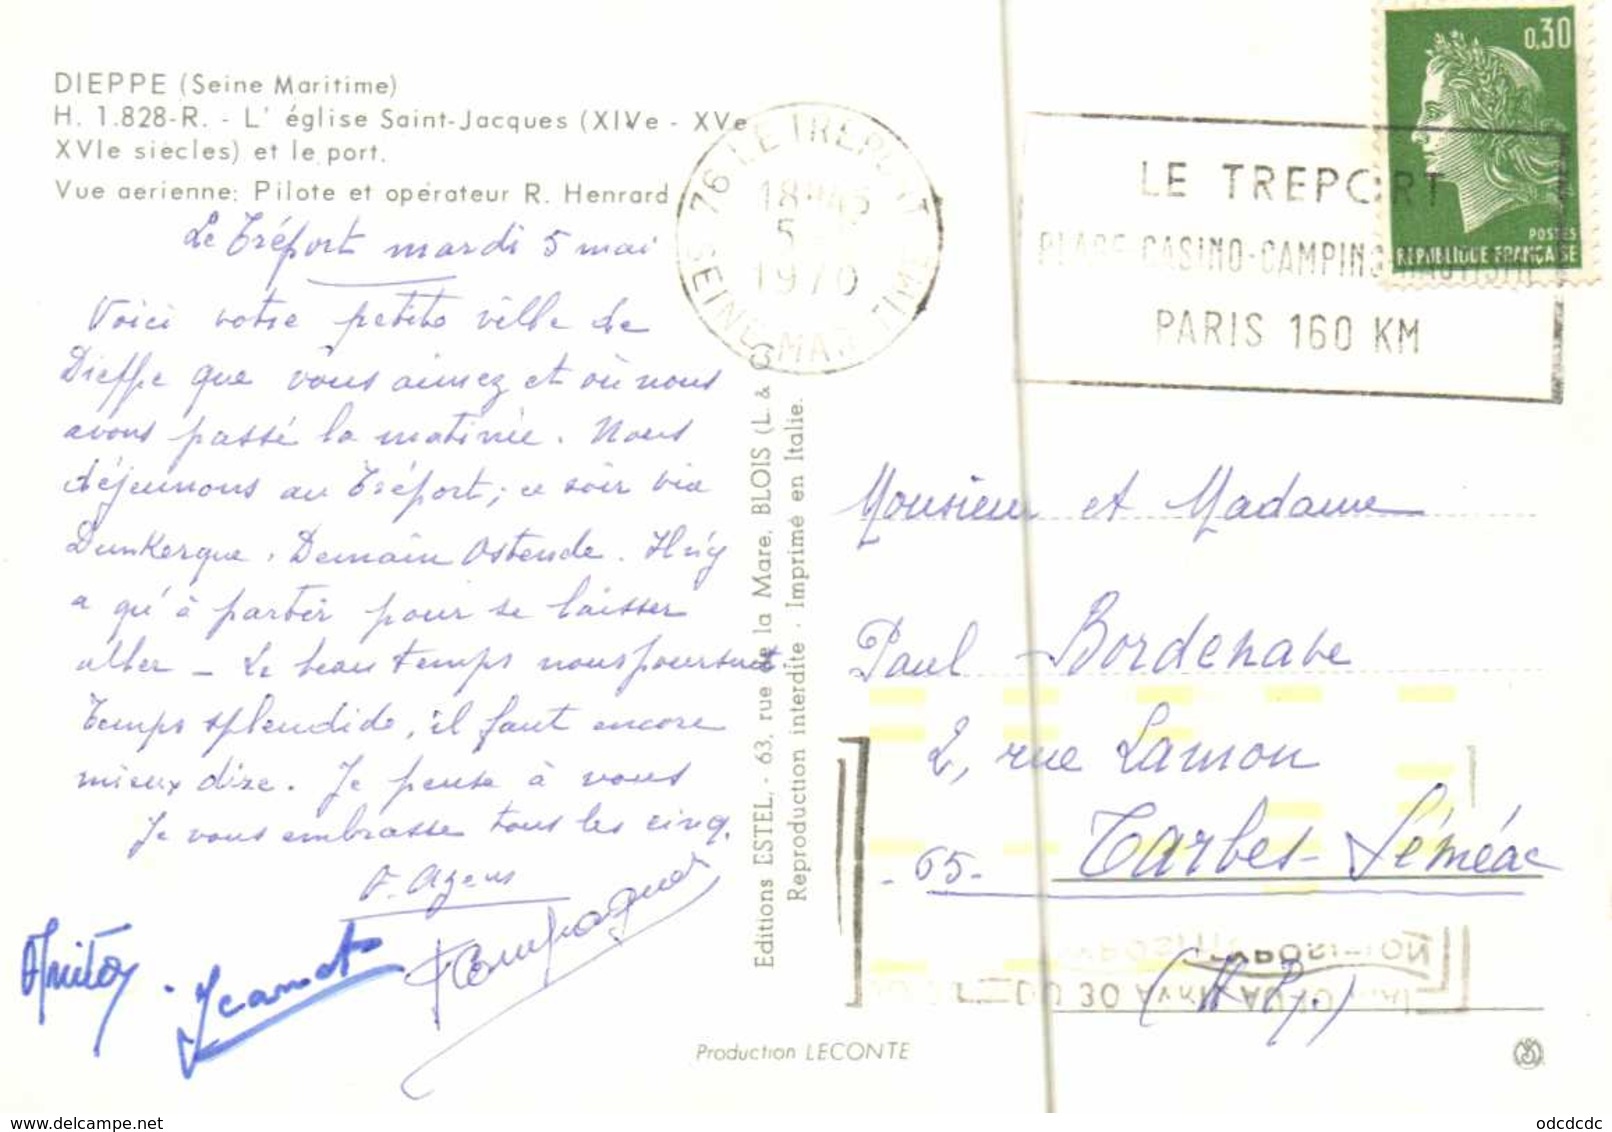 DIEPPE (Seine Maritime)
H. 1.828-R. - L' église Saint-Jacques (XIVe - XVe
XVIe siècles) et le port.
Vue aerienne: Pilote et opérateur R. Henrard
Le Tréport mardi 5 mai
Voici votre petite ville de
Dieppe que vous aimez et où nous
avons passé la matinée. Nous
déjeunons au Tréport; ce soir via
Dunkerque. Demain Ostende. Il n'y
a qu'à partir pour se laisser
aller - Le beau temps nous poursuit.
Temps splendide, il faut encore
mieux dire. Je pense à vous
Je vous embrasse tous les cinq.
Jeannot
76 LE TREPORT
18H45
5
1970
SEINE MARITIME
LE TREPORT
PLAGE-CASINO-CAMPING
PARIS 160 KM
0,30
POSTES
REPUBLIQUE FRANÇAISE
Editions ESTEL. - 63, rue de la Mare, BLOIS (L. & C
Reproduction interdite - Imprimé en Italie.
Monsieur et Madame
Paul Bordenabe
2, rue Lamon
-65- Tarbes-Séméac
(H Py.)
Production LECONTE
www.delcampe.net
odcdcdc